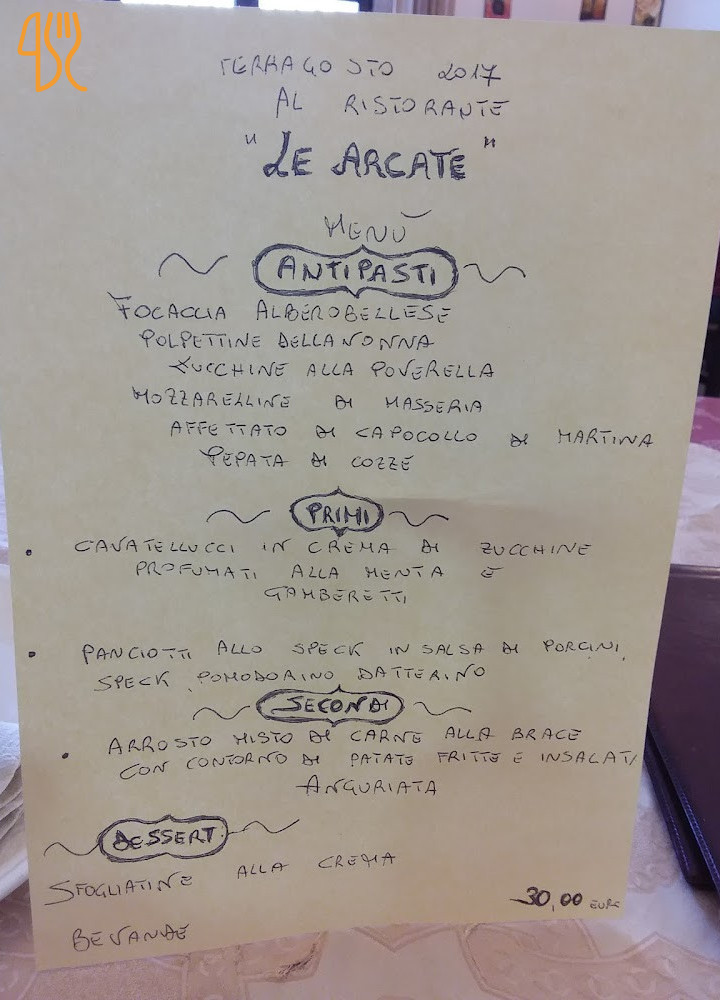 FERRAGOSTO 2017
AL RISTORANTE
"LE ARCATE"
MENÙ
ANTIPASTI
FOCACCIA ALBEROBELLESE
POLPETTINE DELLA NONNA
ZUCCHINE ALLA POVERELLA
MOZZARELLINE DI MASSERIA
AFFETTATO DI CAPOCOLLO DI MARTINA
PEPATA DI COZZE
PRIMI
• CAVATELLUCCI IN CREMA DI ZUCCHINE
PROFUMATI ALLA MENTA E
GAMBERETTI
• PANCIOTTI ALLO SPECK IN SALSA DI PORCINI,
SPECK, POMODORINO DATTERINO
SECONDI
• ARROSTO MISTO DI CARNE ALLA BRACE
CON CONTORNO DI PATATE FRITTE E INSALATA
ANGURIATA
DESSERT
SFOGLIATINE ALLA CREMA
30,00 EURO
BEVANDE